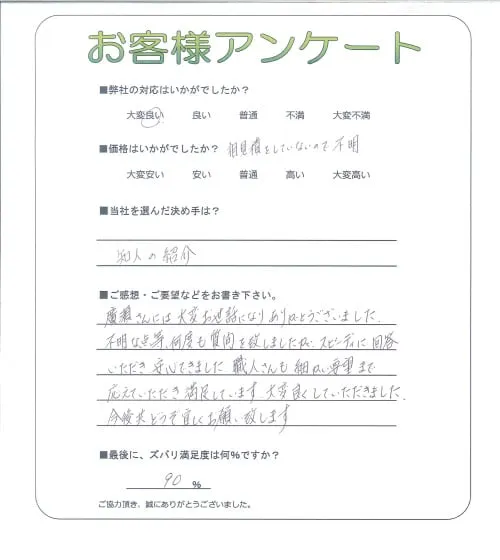 お客様アンケート
■弊社の対応はいかがでしたか？
大変良い 良い 普通 不満 大変不満
■価格はいかがでしたか？ 相見積をしていないので不明
大変安い 安い 普通 高い 大変高い
■当社を選んだ決め手は？
知人の紹介
■ご感想・ご要望などをお書き下さい。
廣瀬さんには大変お世話になりありがとうございました。
不明な点等、何度も質問を致しましたが、スピーディに回答
いただき安心できました 職人さんも細かい要望まで
応えていただき満足しています。大変良くしていただきました。
今後共どうぞ宜しくお願い致します
■最後に、ズバリ満足度は何％ですか？
90 %
ご協力頂き、誠にありがとうございました。